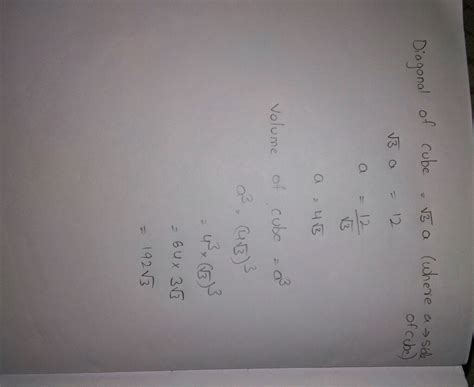 Diagonal of cube = √3 a (where a → side
of cube)
√3 a = 12
a = 12/√3
a = 4√3
Volume of cube = a³
a³ = (4√3)³
= 4³ × (√3)³
= 64 × 3√3
= 192√3